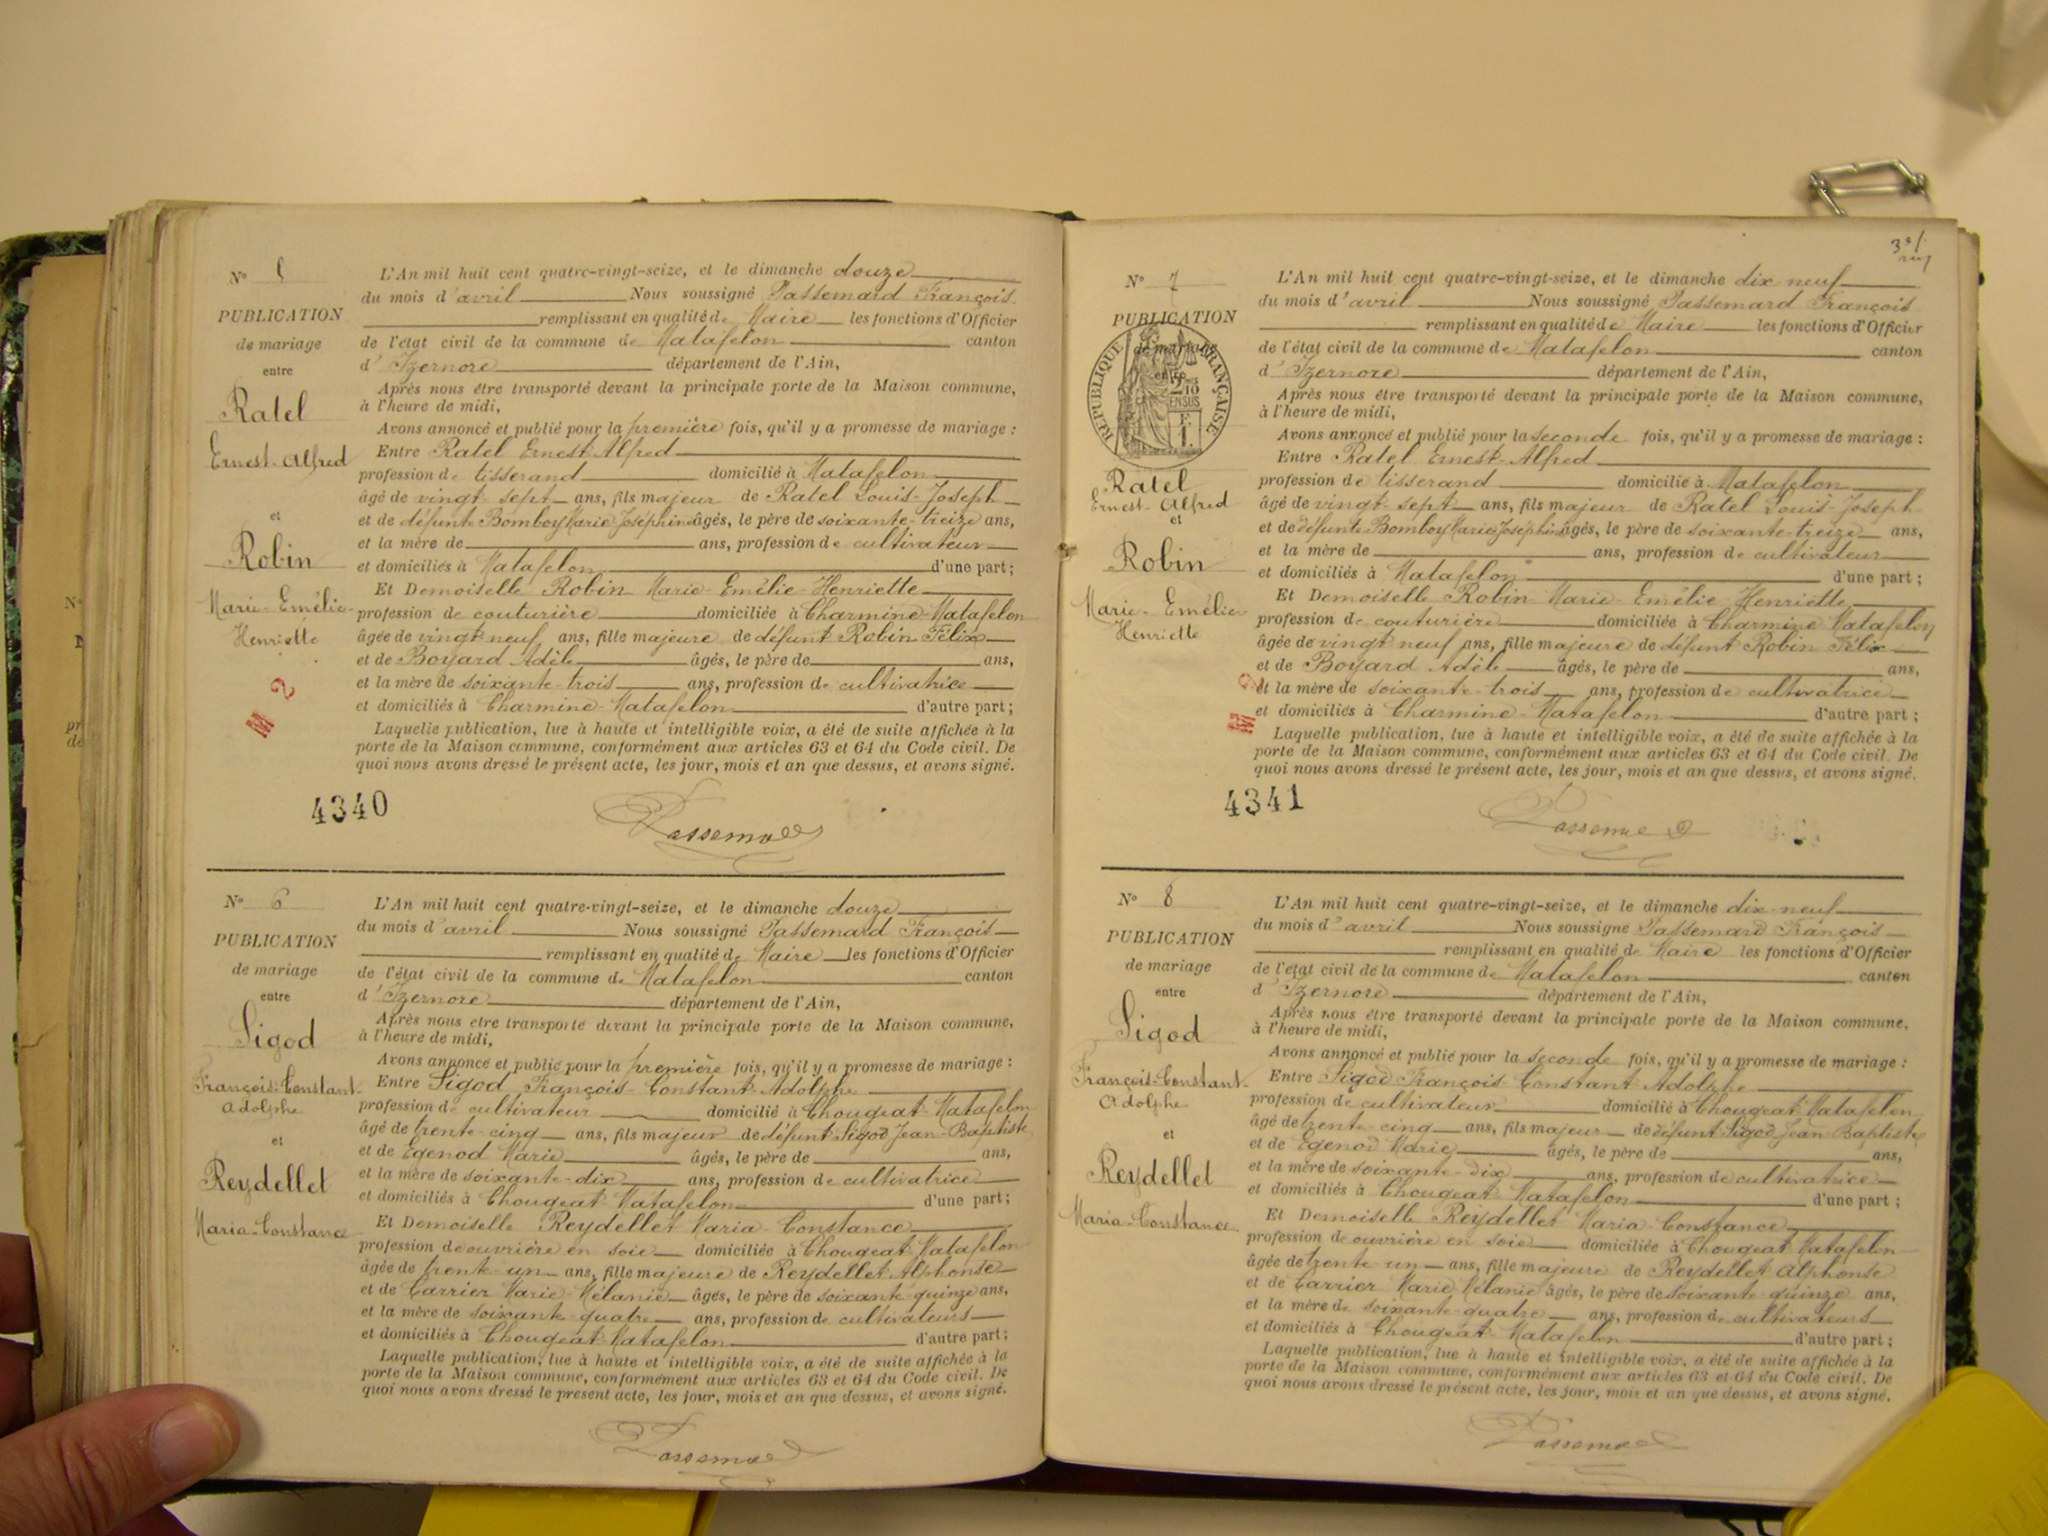 N° 5
PUBLICATION
de mariage
entre
Ratel
Ernest-Alfred
et
Robin
Marie-Emélie-
Henriette
M 2
L'An mil huit cent quatre-vingt-seize, et le dimanche douze
du mois d'avril Nous soussigné Passemard François
remplissant en qualité de Maire les fonctions d'Officier
de l'état civil de la commune de Matafelon canton
d'Izernore département de l'Ain,
Après nous être transporté devant la principale porte de la Maison commune,
à l'heure de midi,
Avons annoncé et publié pour la première fois, qu'il y a promesse de mariage :
Entre Ratel Ernest Alfred
profession de tisserand domicilié à Matafelon
âgé de vingt sept ans, fils majeur de Ratel Louis-Joseph
et de défunte Bomboy Marie Joséphine âgés, le père de soixante-treize ans,
et la mère de ans, profession de cultivateur
et domiciliés à Matafelon d'une part ;
Et Demoiselle Robin Marie-Emélie-Henriette
profession de couturière domiciliée à Charmine-Matafelon
âgée de vingt neuf ans, fille majeure de défunt Robin Félix
et de Boyard Adèle âgés, le père de ans,
et la mère de soixante-trois ans, profession de cultivatrice
et domiciliés à Charmine-Matafelon d'autre part ;
Laquelle publication, lue à haute et intelligible voix, a été de suite affichée à la
porte de la Maison commune, conformément aux articles 63 et 64 du Code civil. De
quoi nous avons dressé le présent acte, les jour, mois et an que dessus, et avons signé.
4340
Passemard
N° 6
PUBLICATION
de mariage
entre
Sigod
François-Constant-
Adolphe
et
Reydellet
Maria-Constance
L'An mil huit cent quatre-vingt-seize, et le dimanche douze
du mois d'avril Nous soussigné Passemard François
remplissant en qualité de Maire les fonctions d'Officier
de l'état civil de la commune de Matafelon canton
d'Izernore département de l'Ain,
Après nous être transporté devant la principale porte de la Maison commune,
à l'heure de midi,
Avons annoncé et publié pour la première fois, qu'il y a promesse de mariage :
Entre Sigod François-Constant-Adolphe
profession de cultivateur domicilié à Chougeat-Matafelon
âgé de trente-cinq ans, fils majeur de défunt Sigod Jean-Baptiste
et de Egenod Marie âgés, le père de ans,
et la mère de soixante-dix ans, profession de cultivatrice
et domiciliés à Chougeat Matafelon d'une part ;
Et Demoiselle Reydellet Maria-Constance
profession de ouvrière en soie domiciliée à Chougeat Matafelon
âgée de trente-un ans, fille majeure de Reydellet Alphonse
et de Carrier Marie-Mélanie âgés, le père de soixante-quinze ans,
et la mère de soixante-quatre ans, profession de cultivateurs
et domiciliés à Chougeat-Matafelon d'autre part ;
Laquelle publication, lue à haute et intelligible voix, a été de suite affichée à la
porte de la Maison commune, conformément aux articles 63 et 64 du Code civil. De
quoi nous avons dressé le présent acte, les jour, mois et an que dessus, et avons signé.
Passemard
N° 7
PUBLICATION
de mariage
entre
RÉPUBLIQUE FRANÇAISE
2/10
EN SUS
1 F
Ratel
Ernest-Alfred
et
Robin
Marie-Emélie-
Henriette
M 2
L'An mil huit cent quatre-vingt-seize, et le dimanche dix neuf
du mois d'avril Nous soussigné Passemard François
remplissant en qualité de Maire les fonctions d'Officier
de l'état civil de la commune de Matafelon canton
d'Izernore département de l'Ain,
Après nous être transporté devant la principale porte de la Maison commune,
à l'heure de midi,
Avons annoncé et publié pour la seconde fois, qu'il y a promesse de mariage :
Entre Ratel Ernest-Alfred
profession de tisserand domicilié à Matafelon
âgé de vingt sept ans, fils majeur de Ratel Louis-Joseph
et de défunte Bomboy Marie Joséphine âgés, le père de soixante-treize ans,
et la mère de ans, profession de cultivateur
et domiciliés à Matafelon d'une part ;
Et Demoiselle Robin Marie-Emélie-Henriette
profession de couturière domiciliée à Charmine Matafelon
âgée de vingt neuf ans, fille majeure de défunt Robin Félix
et de Boyard Adèle âgés, le père de ans,
et la mère de soixante-trois ans, profession de cultivatrice
et domiciliés à Charmine-Matafelon d'autre part ;
Laquelle publication, lue à haute et intelligible voix, a été de suite affichée à la
porte de la Maison commune, conformément aux articles 63 et 64 du Code civil. De
quoi nous avons dressé le présent acte, les jour, mois et an que dessus, et avons signé.
4341
Passemard
N° 8
PUBLICATION
de mariage
entre
Sigod
François-Constant-
Adolphe
et
Reydellet
Maria-Constance
L'An mil huit cent quatre-vingt-seize, et le dimanche dix-neuf
du mois d'avril Nous soussigné Passemard François
remplissant en qualité de Maire les fonctions d'Officier
de l'état civil de la commune de Matafelon canton
d'Izernore département de l'Ain,
Après nous être transporté devant la principale porte de la Maison commune,
à l'heure de midi,
Avons annoncé et publié pour la seconde fois, qu'il y a promesse de mariage :
Entre Sigod François-Constant-Adolphe
profession de cultivateur domicilié à Chougeat-Matafelon
âgé de trente-cinq ans, fils majeur de défunt Sigod Jean Baptiste
et de Egenod Marie âgés, le père de ans,
et la mère de soixante-dix ans, profession de cultivatrice
et domiciliés à Chougeat Matafelon d'une part ;
Et Demoiselle Reydellet Maria-Constance
profession de ouvrière en soie domiciliée à Chougeat Matafelon
âgée de trente-un ans, fille majeure de Reydellet Alphonse
et de Carrier Marie Mélanie âgés, le père de soixante-quinze ans,
et la mère de soixante-quatre ans, profession de cultivateurs
et domiciliés à Chougeat-Matafelon d'autre part ;
Laquelle publication, lue à haute et intelligible voix, a été de suite affichée à la
porte de la Maison commune, conformément aux articles 63 et 64 du Code civil. De
quoi nous avons dressé le présent acte, les jour, mois et an que dessus, et avons signé.
Passemard